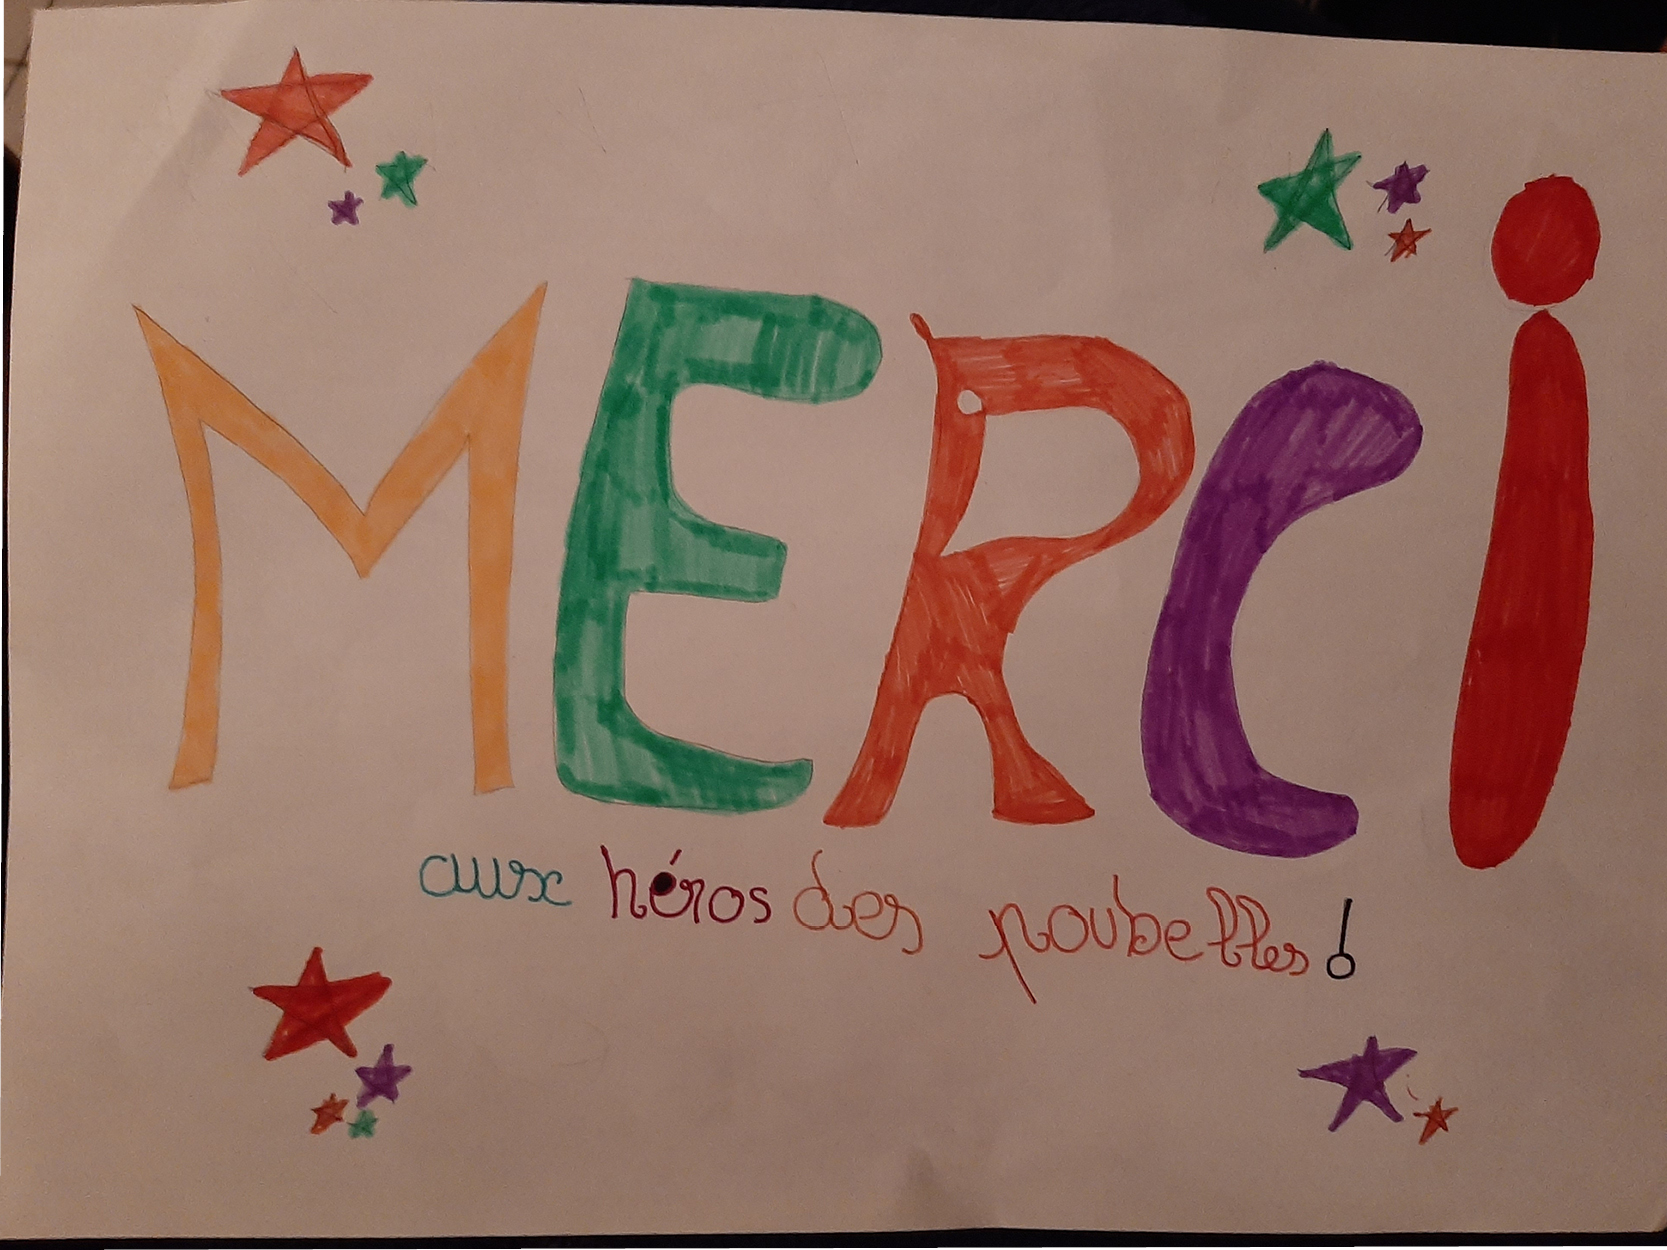 MERCi
aux héros des poubelles!